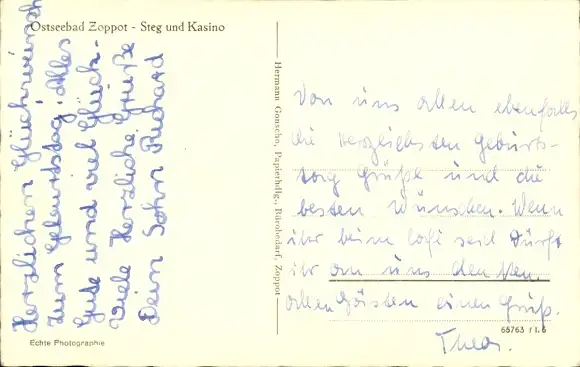 Ostseebad Zoppot - Steg und Kasino
Herzlichen Glückwunsch
zum Geburtstag. Alles
Gute und viel Glück.
Viele Herzliche Grüße
Dein Sohn Richard
Echte Photographie
Hermann Gonscho, Papierhdlg., Bürobedarf, Zoppot
Von uns allen ebenfalls
die herzlichsten Geburts-
tag Grüße und die
besten Wünschen. Wenn
ihr beim seid dürft
ihr an uns denken.
allen Gästen einen Gruß.
Theo.
68763 / 1.6